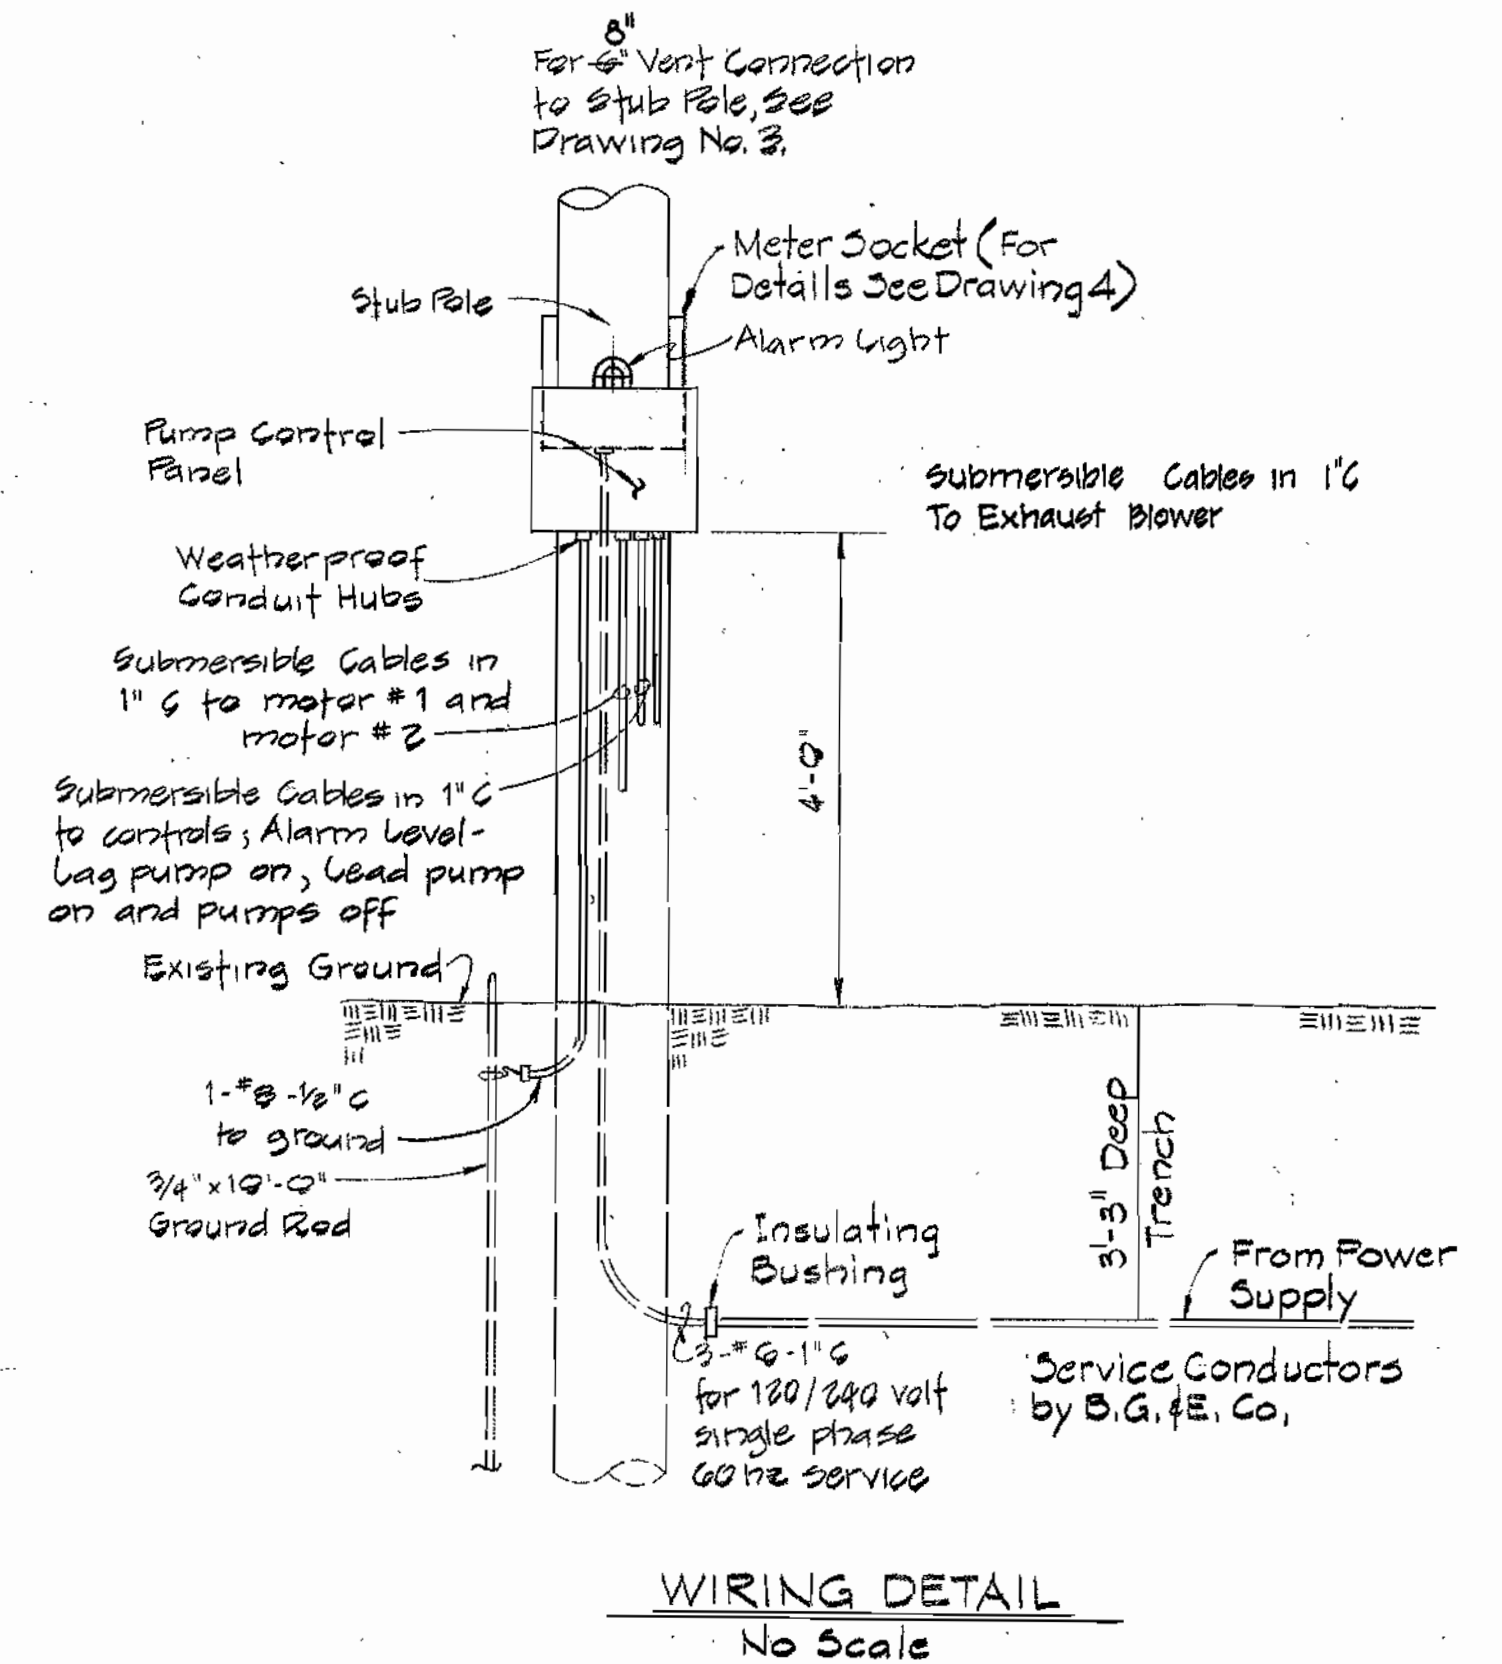 8"
For 6" Vent Connection
to Stub Pole, See
Drawing No. 3.
Meter Socket (For
Details See Drawing 4)
Stub Pole
Alarm Light
Pump Control
Panel
Submersible Cables in 1"C
To Exhaust Blower
Weatherproof
Conduit Hubs
Submersible Cables in
1" C to motor #1 and
motor #2
4'-0"
Submersible Cables in 1" C
to controls; Alarm Level-
Lag pump on, Lead pump
on and pumps off
Existing Ground
1-#8-1/2" C
to ground
3/4" x 10'-0"
Ground Rod
3'-3" Deep
Trench
Insulating
Bushing
From Power
Supply
3-#6-1" C
for 120/240 volt
single phase
60 hz service
Service Conductors
by B.G.&E. Co.
WIRING DETAIL
No Scale